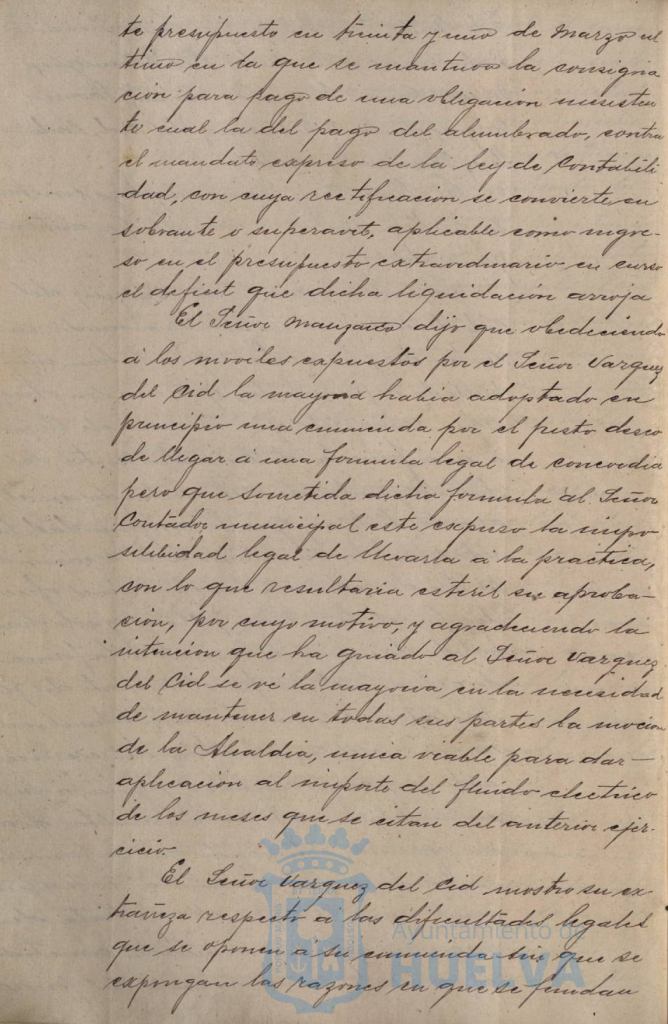 te presupuesto en treinta y uno de Marzo ul
timo en la que se mantuvo la consigna
ción para pago de una obligación inexisten
te cual la del pago del alumbrado, contra
el mandato expreso de la ley de Contabili
dad, con cuya rectificacion se convierte en
sobrante o superavit, aplicable como ingre-
so en el presupuesto extraordinario en curso
el deficit que dicha liquidación arroja
El Señor Manzano dijo que obedeciendo
á los moviles expuestos por el Señor Vazquez
del Cid la mayoria habia adoptado en
principio una enmienda por el justo deseo
de llegar á una formula legal de concordia
pero que sometida dicha formula al Señor
Contador municipal este expuso la impo
sibilidad legal de llevarla á la practica,
con lo que resultaria esteril su aproba-
ción, por cuyo motivo, y agradeciendo la
intencion que ha guiado al Señor Vazquez
del Cid se vé la mayoria en la necesidad
de mantener en todas sus partes la mocion
de la Alcaldia, unica viable para dar-
aplicacion al importe del fluido electrico
de los meses que se citan del anterior ejer-
cicio.
El Señor Vazquez del Cid mostro su ex-
trañeza respecto á las dificultades legales
que se oponen á su enmienda sin que se
expongan las razones en que se fundan
Ayuntamiento de
HUELVA